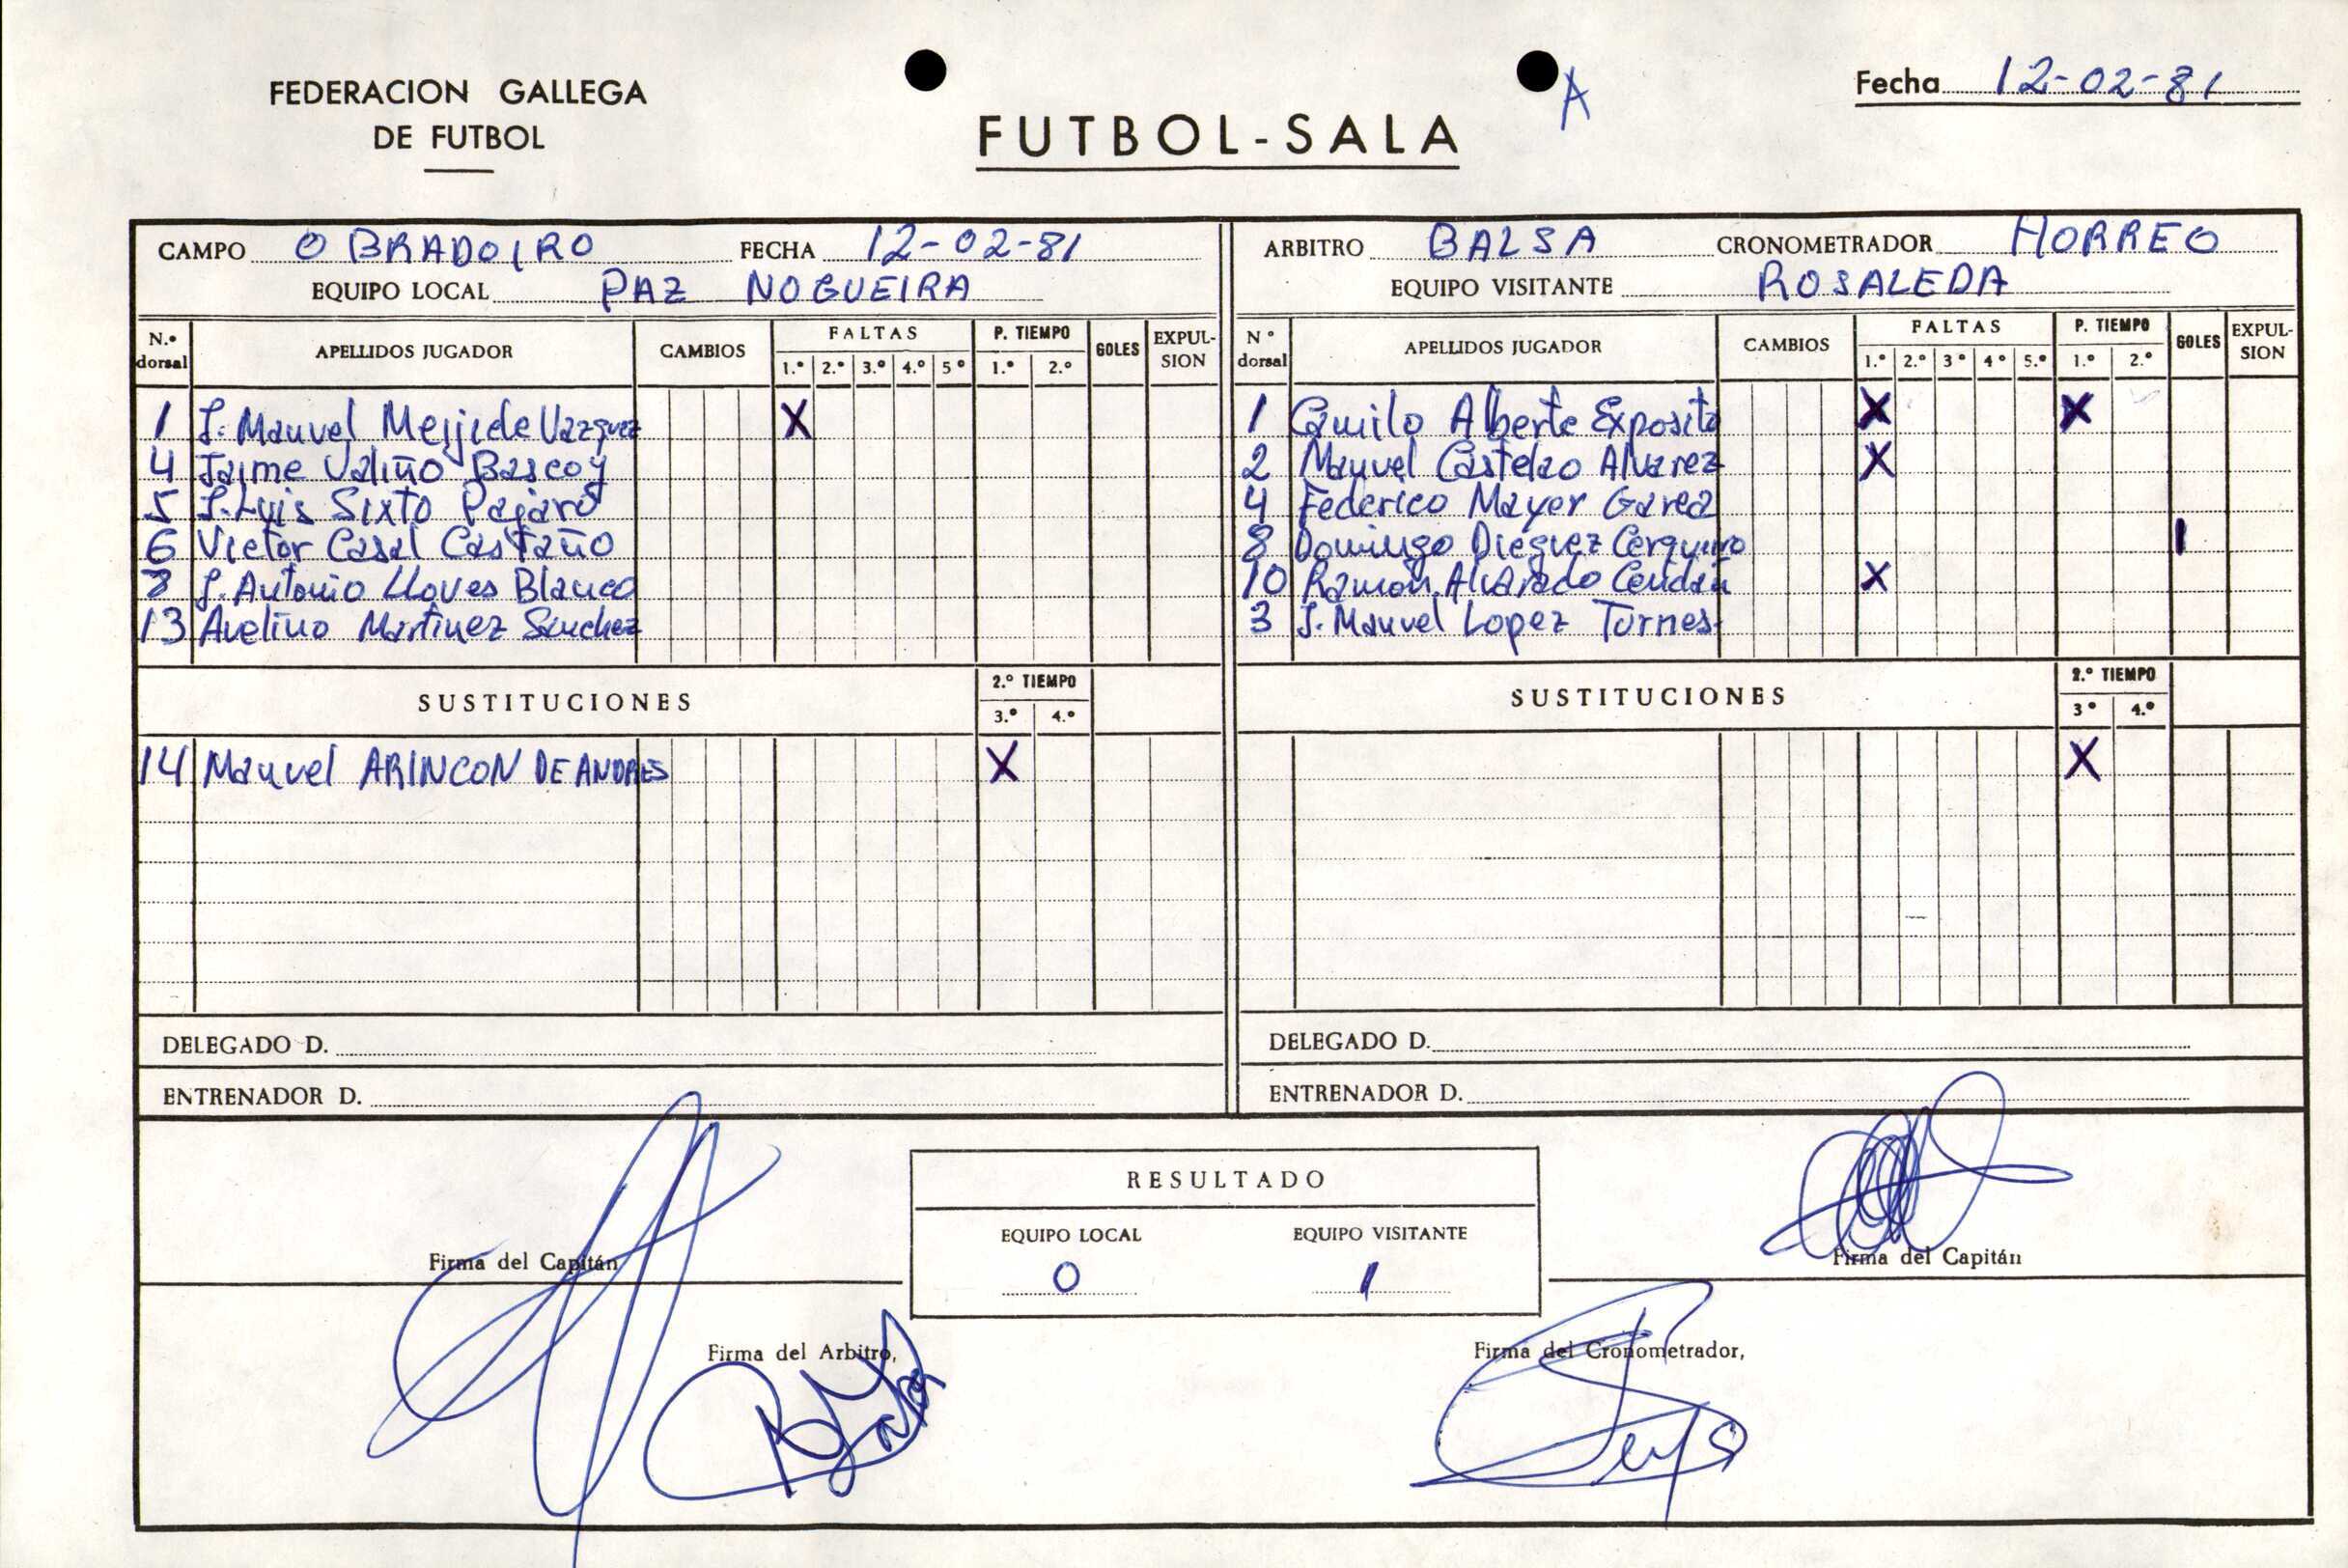 FEDERACION GALLEGA
DE FUTBOL
FUTBOL-SALA
A
Fecha 12-02-81
CAMPO O BRADOIRO FECHA 12-02-81
EQUIPO LOCAL PAZ NOGUEIRA
N.º dorsal APELLIDOS JUGADOR CAMBIOS FALTAS 1.º 2.º 3.º 4.º 5º P. TIEMPO 1.º 2.º GOLES EXPUL-SION
1 J. Manuel Mejide Vazquez X
4 Jaime Valiño Bascoy
5 J. Luis Sixto Pajaro
6 Victor Casal Castaño
8 J. Antonio Lloves Blanco
13 Avelino Martinez Sanchez
SUSTITUCIONES 2.º TIEMPO 3.º 4.º
14 Manuel ARINCON DE ANDRES X
DELEGADO D.
ENTRENADOR D.
ARBITRO BALSA CRONOMETRADOR HORREO
EQUIPO VISITANTE ROSALEDA
Nº dorsal APELLIDOS JUGADOR CAMBIOS FALTAS 1.º 2.º 3º 4º 5.º P. TIEMPO 1.º 2.º GOLES EXPUL-SION
1 Camilo Alberte Exposito X X
2 Manuel Castelao Alvarez X
4 Federico Mayer Garea
8 Domingo Dieguez Cerqueiro 1
10 Ramon Alvarado Cendan X
3 J. Manuel Lopez Turnes
SUSTITUCIONES 2.º TIEMPO 3º 4.º
X
DELEGADO D.
ENTRENADOR D.
RESULTADO
EQUIPO LOCAL EQUIPO VISITANTE
0 1
Firma del Capitán
Firma del Capitán
Firma del Arbitro,
Firma del Cronometrador,